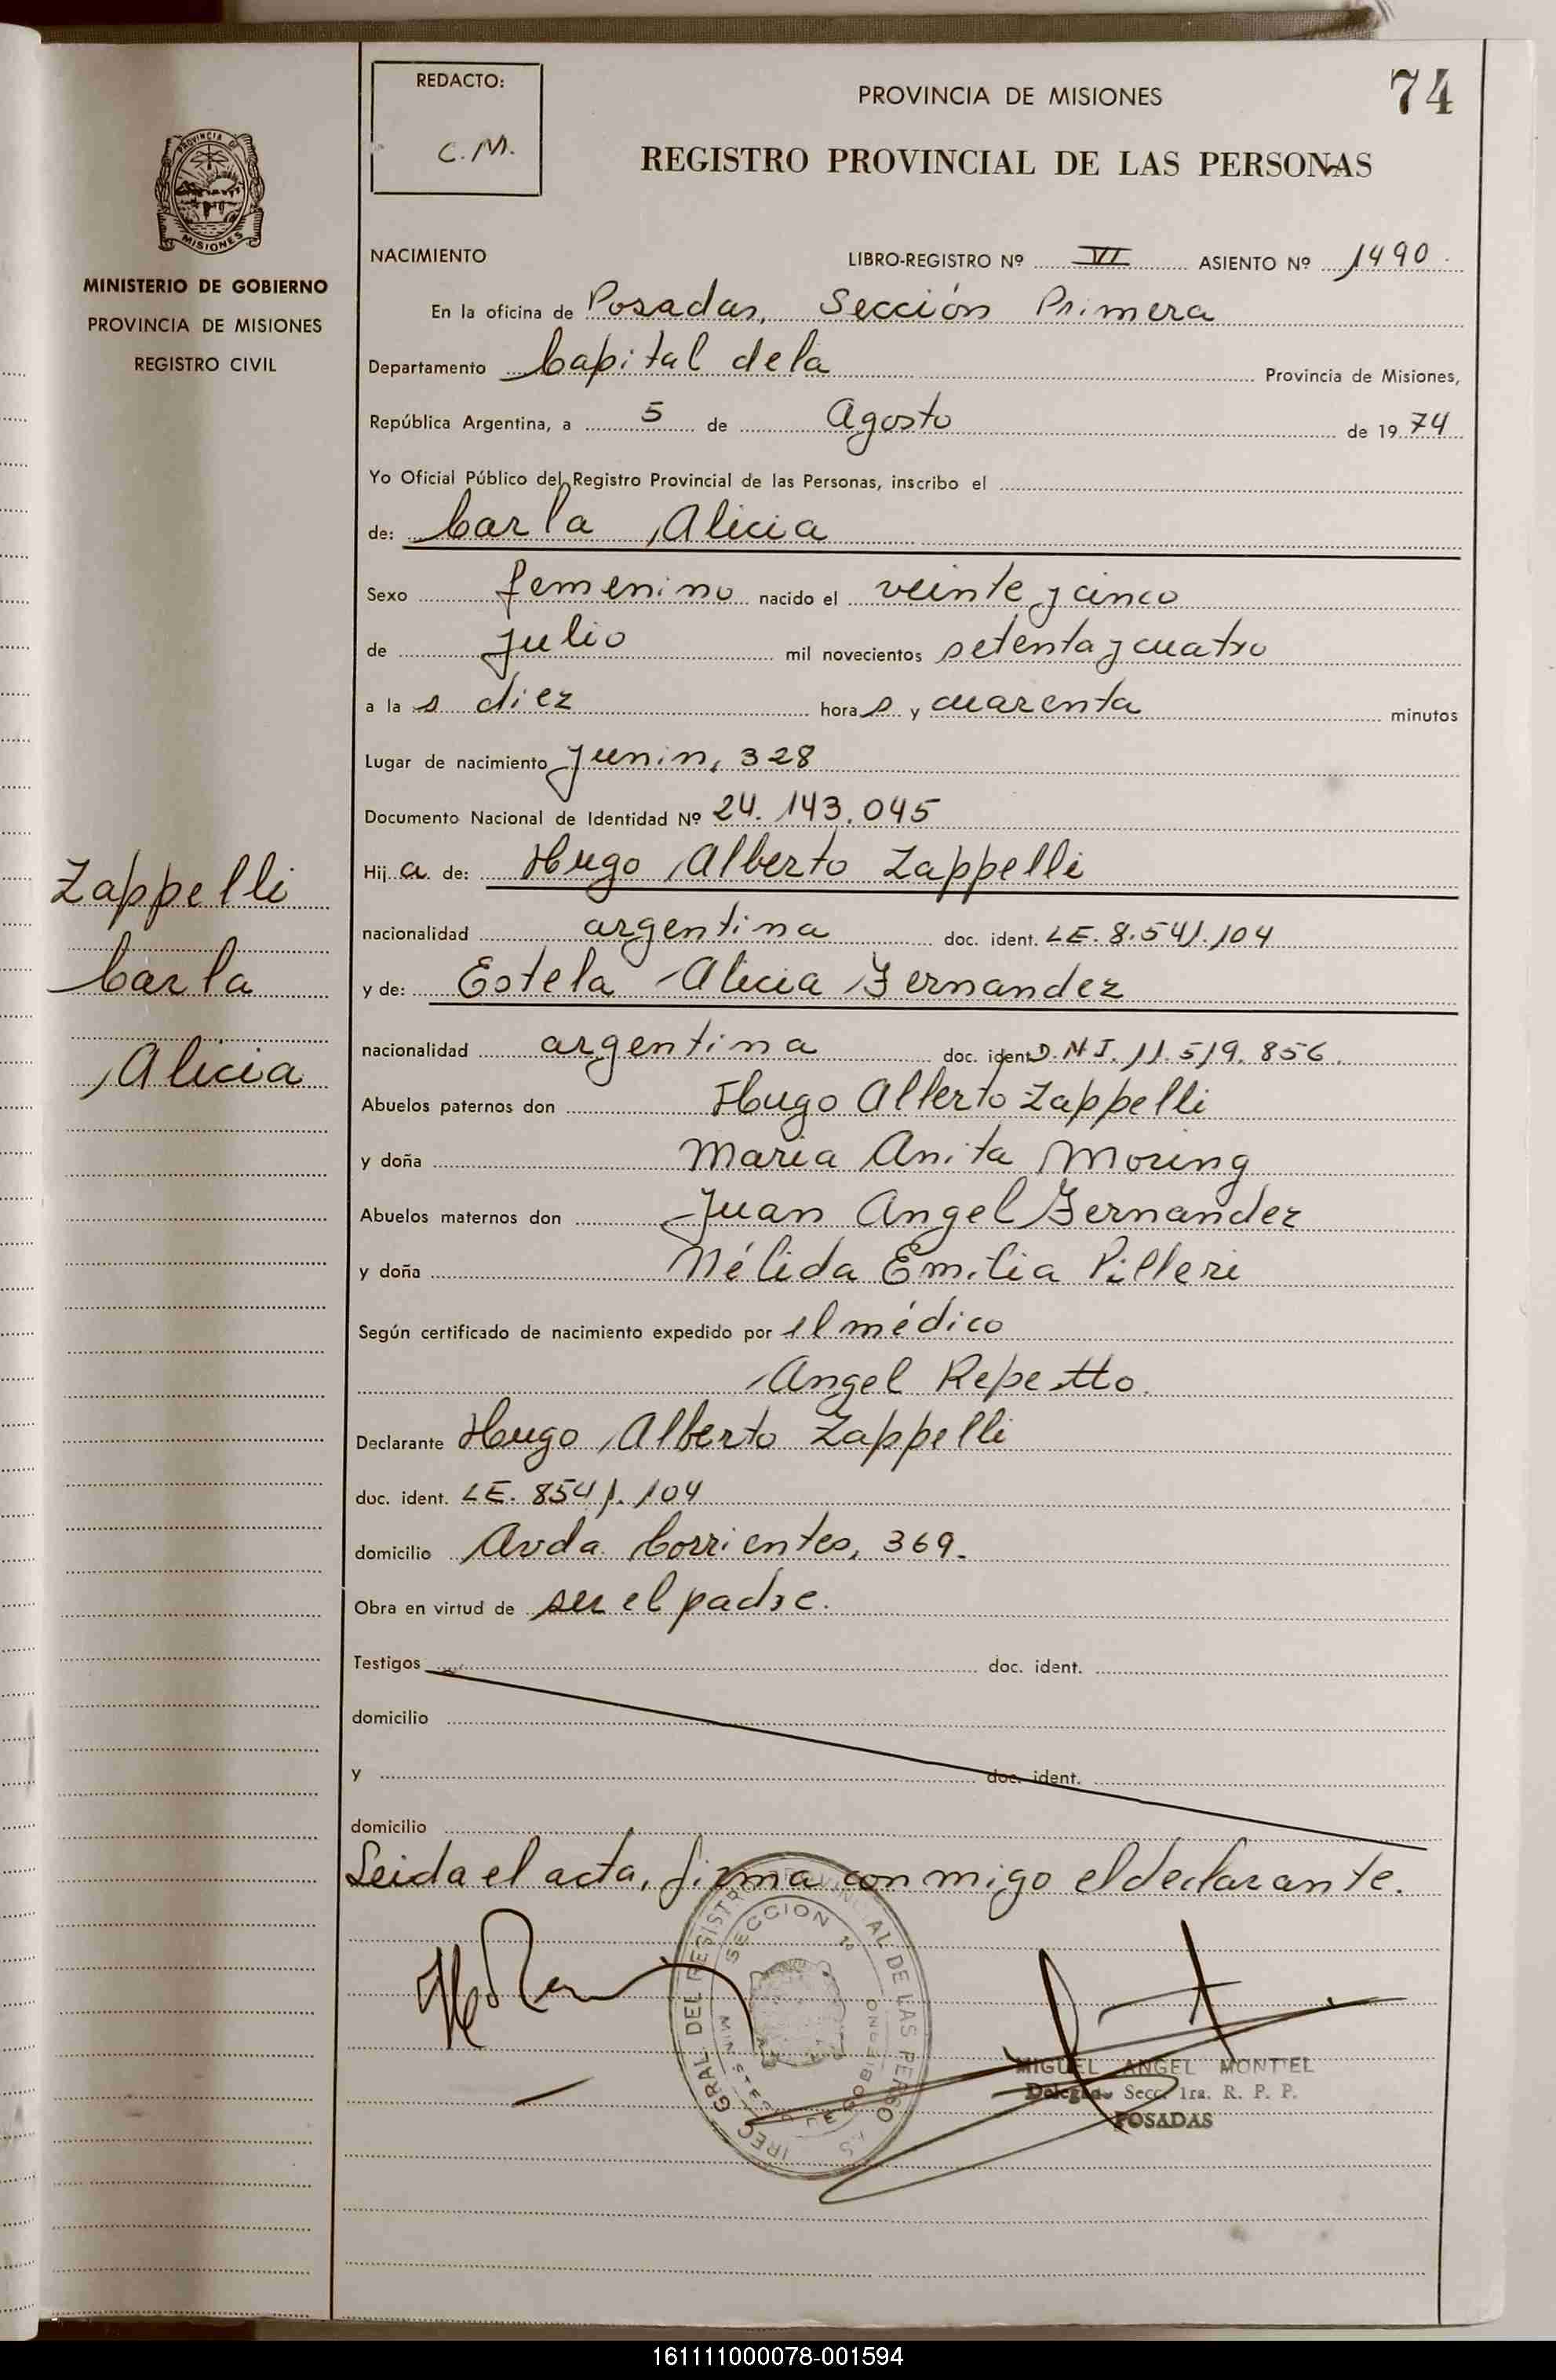 REDACTO:
C.M.
PROVINCIA DE MISIONES
74
REGISTRO PROVINCIAL DE LAS PERSONAS
PROVINCIA DE
MISIONES
MINISTERIO DE GOBIERNO
PROVINCIA DE MISIONES
REGISTRO CIVIL
NACIMIENTO LIBRO-REGISTRO Nº VI ASIENTO Nº 1490.
En la oficina de Posadas, Sección Primera
Departamento Capital de la Provincia de Misiones,
República Argentina, a 5 de Agosto de 19 74
Yo Oficial Público del Registro Provincial de las Personas, inscribo el
de: Carla Alicia
Sexo femenino nacido el veinte y cinco
de Julio mil novecientos setenta y cuatro
a la s diez hora s y cuarenta minutos
Lugar de nacimiento Junin, 328
Documento Nacional de Identidad Nº 24.143.045
Hij a de: Hugo Alberto Zappelli
nacionalidad argentina doc. ident. LE. 8.541.104
y de: Estela Alicia Fernandez
nacionalidad argentina doc. ident D.N.I. 11.519.856.
Abuelos paternos don Hugo Alberto Zappelli
y doña Maria Anita Moring
Abuelos maternos don Juan Angel Fernandez
y doña Nélida Emilia Pilleri
Según certificado de nacimiento expedido por el médico
Angel Repetto.
Declarante Hugo Alberto Zappelli
doc. ident. LE. 8541.104
domicilio Avda. Corrientes, 369.
Obra en virtud de ser el padre.
Testigos doc. ident.
domicilio
y doc. ident.
domicilio
Leida el acta, firma conmigo el declarante.
Zappelli
Carla
Alicia
SECCION 1º
MIGUEL ANGEL MONTIEL
Delegado Secc. 1ra. R. P. P.
POSADAS
161111000078-001594